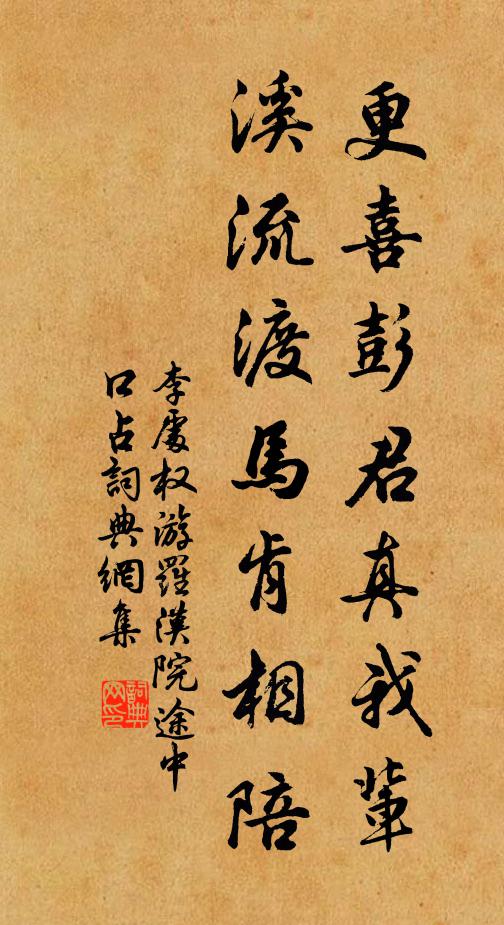 更喜彭君真我輩
溪流渡馬肯相陪
李處权游羅漢院途中
口占詞典網集
詞典网印